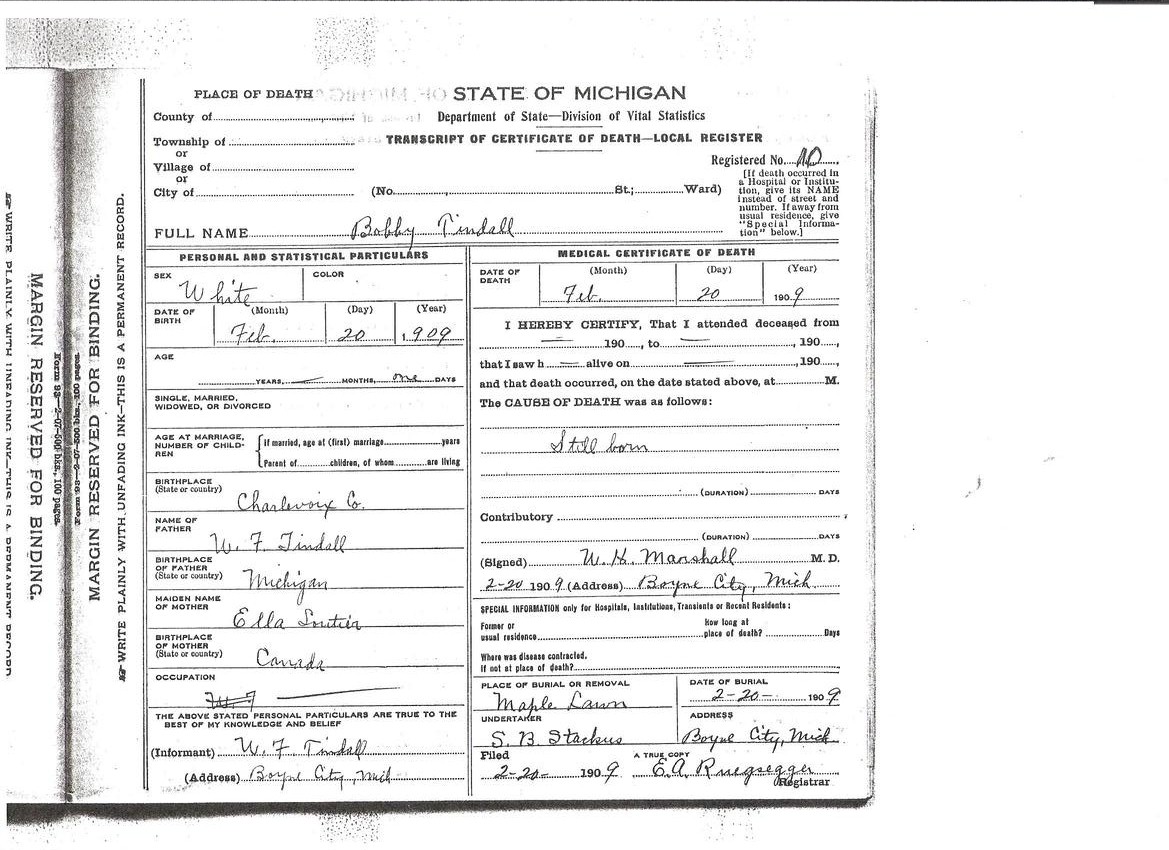 PLACE OF DEATH
STATE OF MICHIGAN
County of
Department of State—Division of Vital Statistics
Township of
TRANSCRIPT OF CERTIFICATE OF DEATH—LOCAL REGISTER
or
Registered No. 10
Village of
or
City of (No. St.; Ward)
[If death occurred in
a Hospital or Institu-
tion, give its NAME
instead of street and
number. If away from
usual residence, give
"Special Informa-
tion" below.]
FULL NAME Bobby Tindall
PERSONAL AND STATISTICAL PARTICULARS
SEX
COLOR
White
DATE OF
BIRTH
(Month) (Day) (Year)
Feb. 20 1909
AGE
YEARS, — MONTHS, one DAYS
SINGLE, MARRIED,
WIDOWED, OR DIVORCED
AGE AT MARRIAGE,
NUMBER OF CHILD-
REN
If married, age at (first) marriage years
Parent of children, of whom are living
BIRTHPLACE
(State or country)
Charlevoix Co.
NAME OF
FATHER
W. F. Tindall
BIRTHPLACE
OF FATHER
(State or country)
Michigan
MAIDEN NAME
OF MOTHER
Ella
BIRTHPLACE
OF MOTHER
(State or country)
Canada
OCCUPATION
THE ABOVE STATED PERSONAL PARTICULARS ARE TRUE TO THE
BEST OF MY KNOWLEDGE AND BELIEF
(Informant) W. F Tindall
(Address) Boyne City, Mich
MEDICAL CERTIFICATE OF DEATH
DATE OF
DEATH
(Month) (Day) (Year)
Feb. 20 1909
I HEREBY CERTIFY, That I attended deceased from
— 190 , to — , 190 ,
that I saw h — alive on — , 190 ,
and that death occurred, on the date stated above, at M.
The CAUSE OF DEATH was as follows:
Still born
(DURATION) DAYS
Contributory
(DURATION) DAYS
(Signed) W. H. Marshall M. D.
2-20 1909 (Address) Boyne City, Mich
SPECIAL INFORMATION only for Hospitals, Institutions, Transients or Recent Residents:
Former or
usual residence
How long at
place of death? Days
Where was disease contracted,
if not at place of death?
PLACE OF BURIAL OR REMOVAL
Maple Lawn
DATE OF BURIAL
2-20- 1909
UNDERTAKER
S. B. Stackus
ADDRESS
Boyne City, Mich
Filed
2-20- 1909
A TRUE COPY
E. A. Ruegsegger
Registrar
WRITE PLAINLY WITH UNFADING INK—THIS IS A PERMANENT RECORD.
MARGIN RESERVED FOR BINDING.
Form 98—2-07-500 bks., 100 pages.
Form 98—2-07-500 bks., 100 pages.
MARGIN RESERVED FOR BINDING.
WRITE PLAINLY WITH UNFADING INK—THIS IS A PERMANENT RECORD